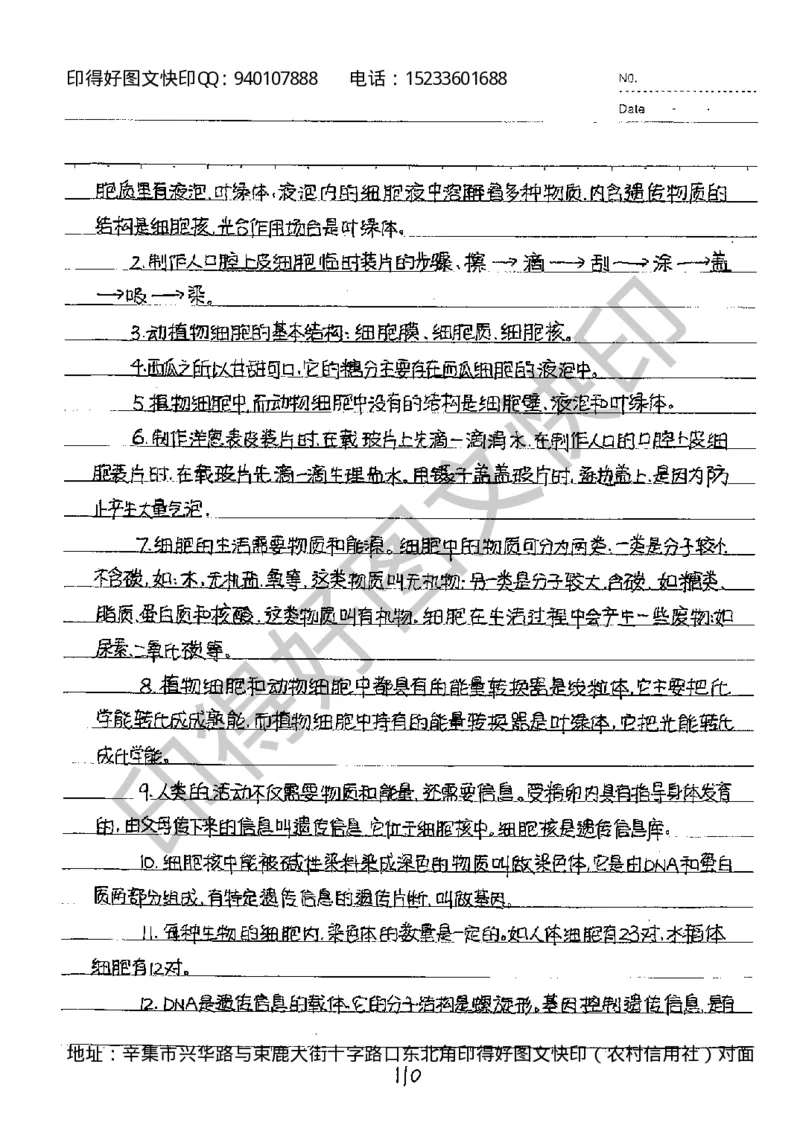 印得好图文快印QQ：940107888 电话：15233601688
No.
Date
胞质里有液泡、叶绿体，液泡内的细胞液中溶解着多种物质，内含遗传物质的
结构是细胞核，光合作用场合是叶绿体。
2.制作人口腔上皮细胞临时装片的步骤、擦→滴→刮→涂→盖
→吸→染。
3.动植物细胞的基本结构：细胞膜、细胞质、细胞核。
4.西瓜之所以甘甜可口，它的糖分主要存在西瓜细胞的液泡中。
5.植物细胞中，而动物细胞中没有的结构是细胞壁、液泡和叶绿体。
6.制作洋葱表皮装片时，在载玻片上先滴一滴清水，在制作人口的口腔上皮细
胞装片时，在载玻片先滴一滴生理盐水。用镊子盖盖玻片时，逐边盖上，是因为防
止产生大量气泡。
7.细胞的生活需要物质和能源。细胞中的物质可分为两类，一类是分子较小
不含碳，如：水，无机盐、氧等，这类物质叫无机物；另一类是分子较大，含碳，如糖类、
脂质、蛋白质和核酸，这类物质叫有机物。细胞在生活过程中会产生一些废物：如
尿素、二氧化碳等。
8.植物细胞和动物细胞中都具有的能量转换器是线粒体，它主要把化
学能转化成成熟能，而植物细胞中持有的能量转换器是叶绿体，它把光能转化
成化学能。
9.人类的活动不仅需要物质和能量，还需要信息。受精卵内具有指导身体发育
的，由父母传下来的信息叫遗传信息，它位于细胞核中。细胞核是遗传信息库。
10.细胞核中能被碱性染料染成深色的物质叫做染色体，它是由DNA和蛋白
质两部分组成，有特定遗传信息的遗传片断，叫做基因。
11.每种生物的细胞内，染色体的数量是一定的。如人体细胞有23对，水稻体
细胞有12对。
12.DNA是遗传信息的载体，它的分子结构是螺旋形。基因控制遗传信息，是有
地址：辛集市兴华路与束鹿大街十字路口东北角印得好图文快印（农村信用社）对面
110
印得好图文快印